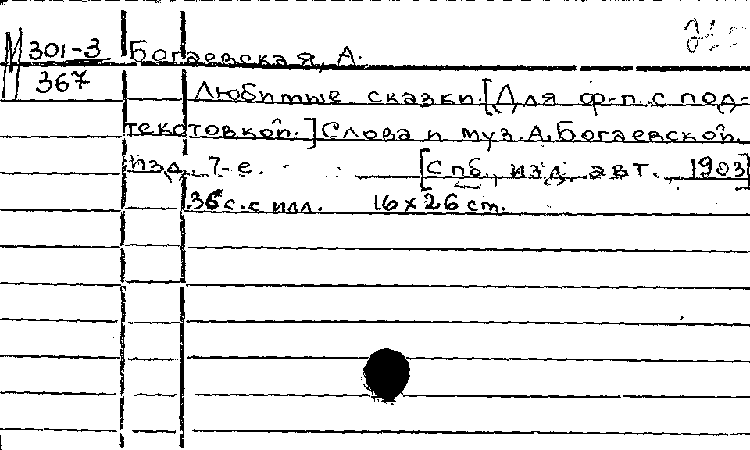 М 301-3 Богаевская, А.
367
Любимые сказки. [Для ф-п. с под-
текстовкой.] Слова и муз. А. Богаевской.
Изд. 7-е. [Спб., изд. авт. 1903]
36 с. с илл. 16 x 26 cm.